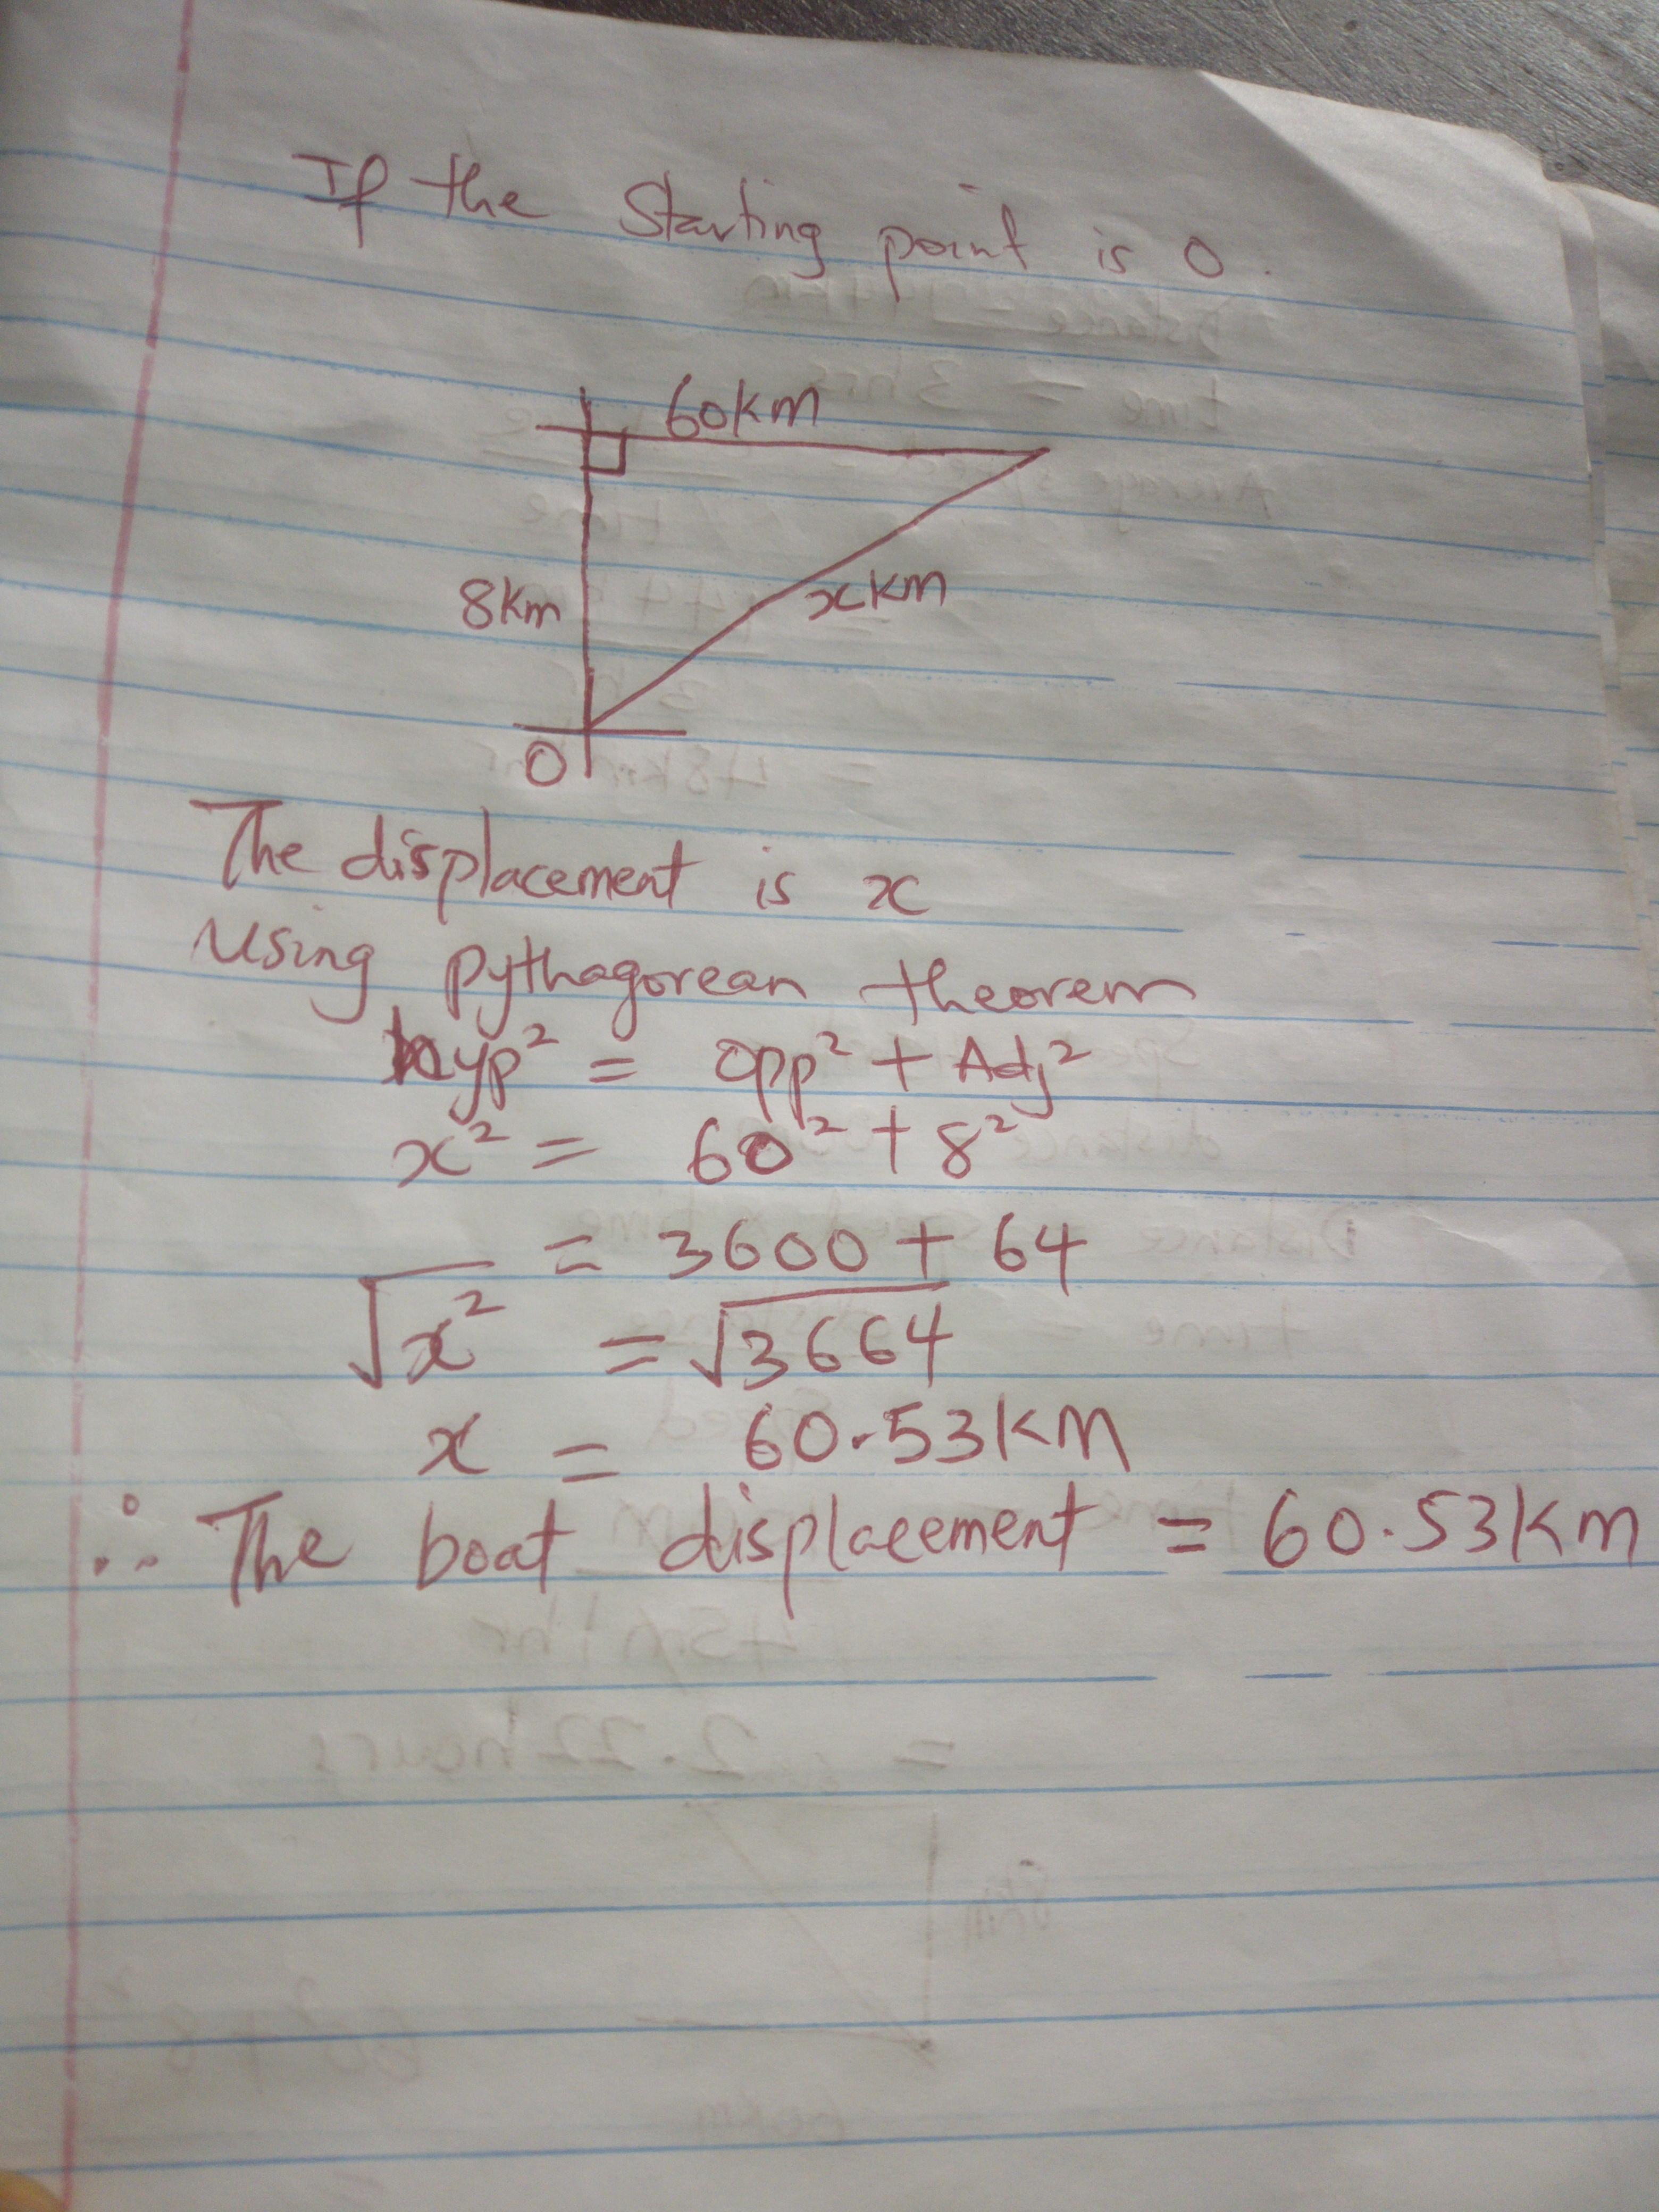 If the Starting point is 0.
60km
8km
x km
0
The displacement is x
Using pythagorean theorem
hyp² = opp² + Adj²
x² = 60² + 8²
= 3600 + 64
√x² = √3664
x = 60.53km
∴ The boat displacement = 60.53km